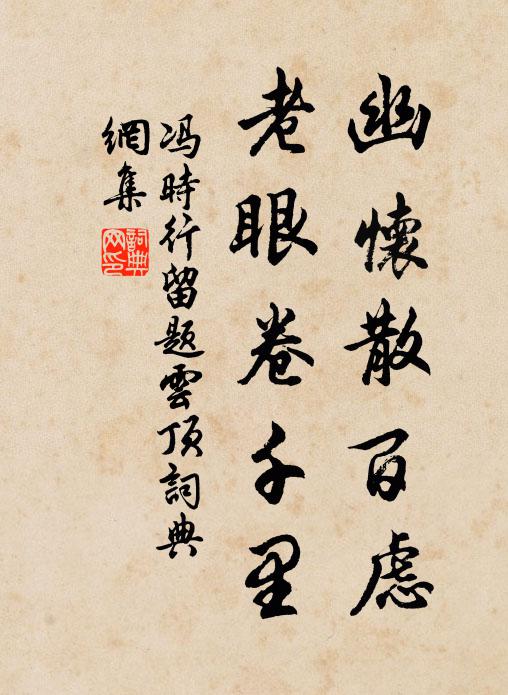 幽懷散百慮
老眼卷千里
冯時行留題雲頂詞典
網集
詞典網印